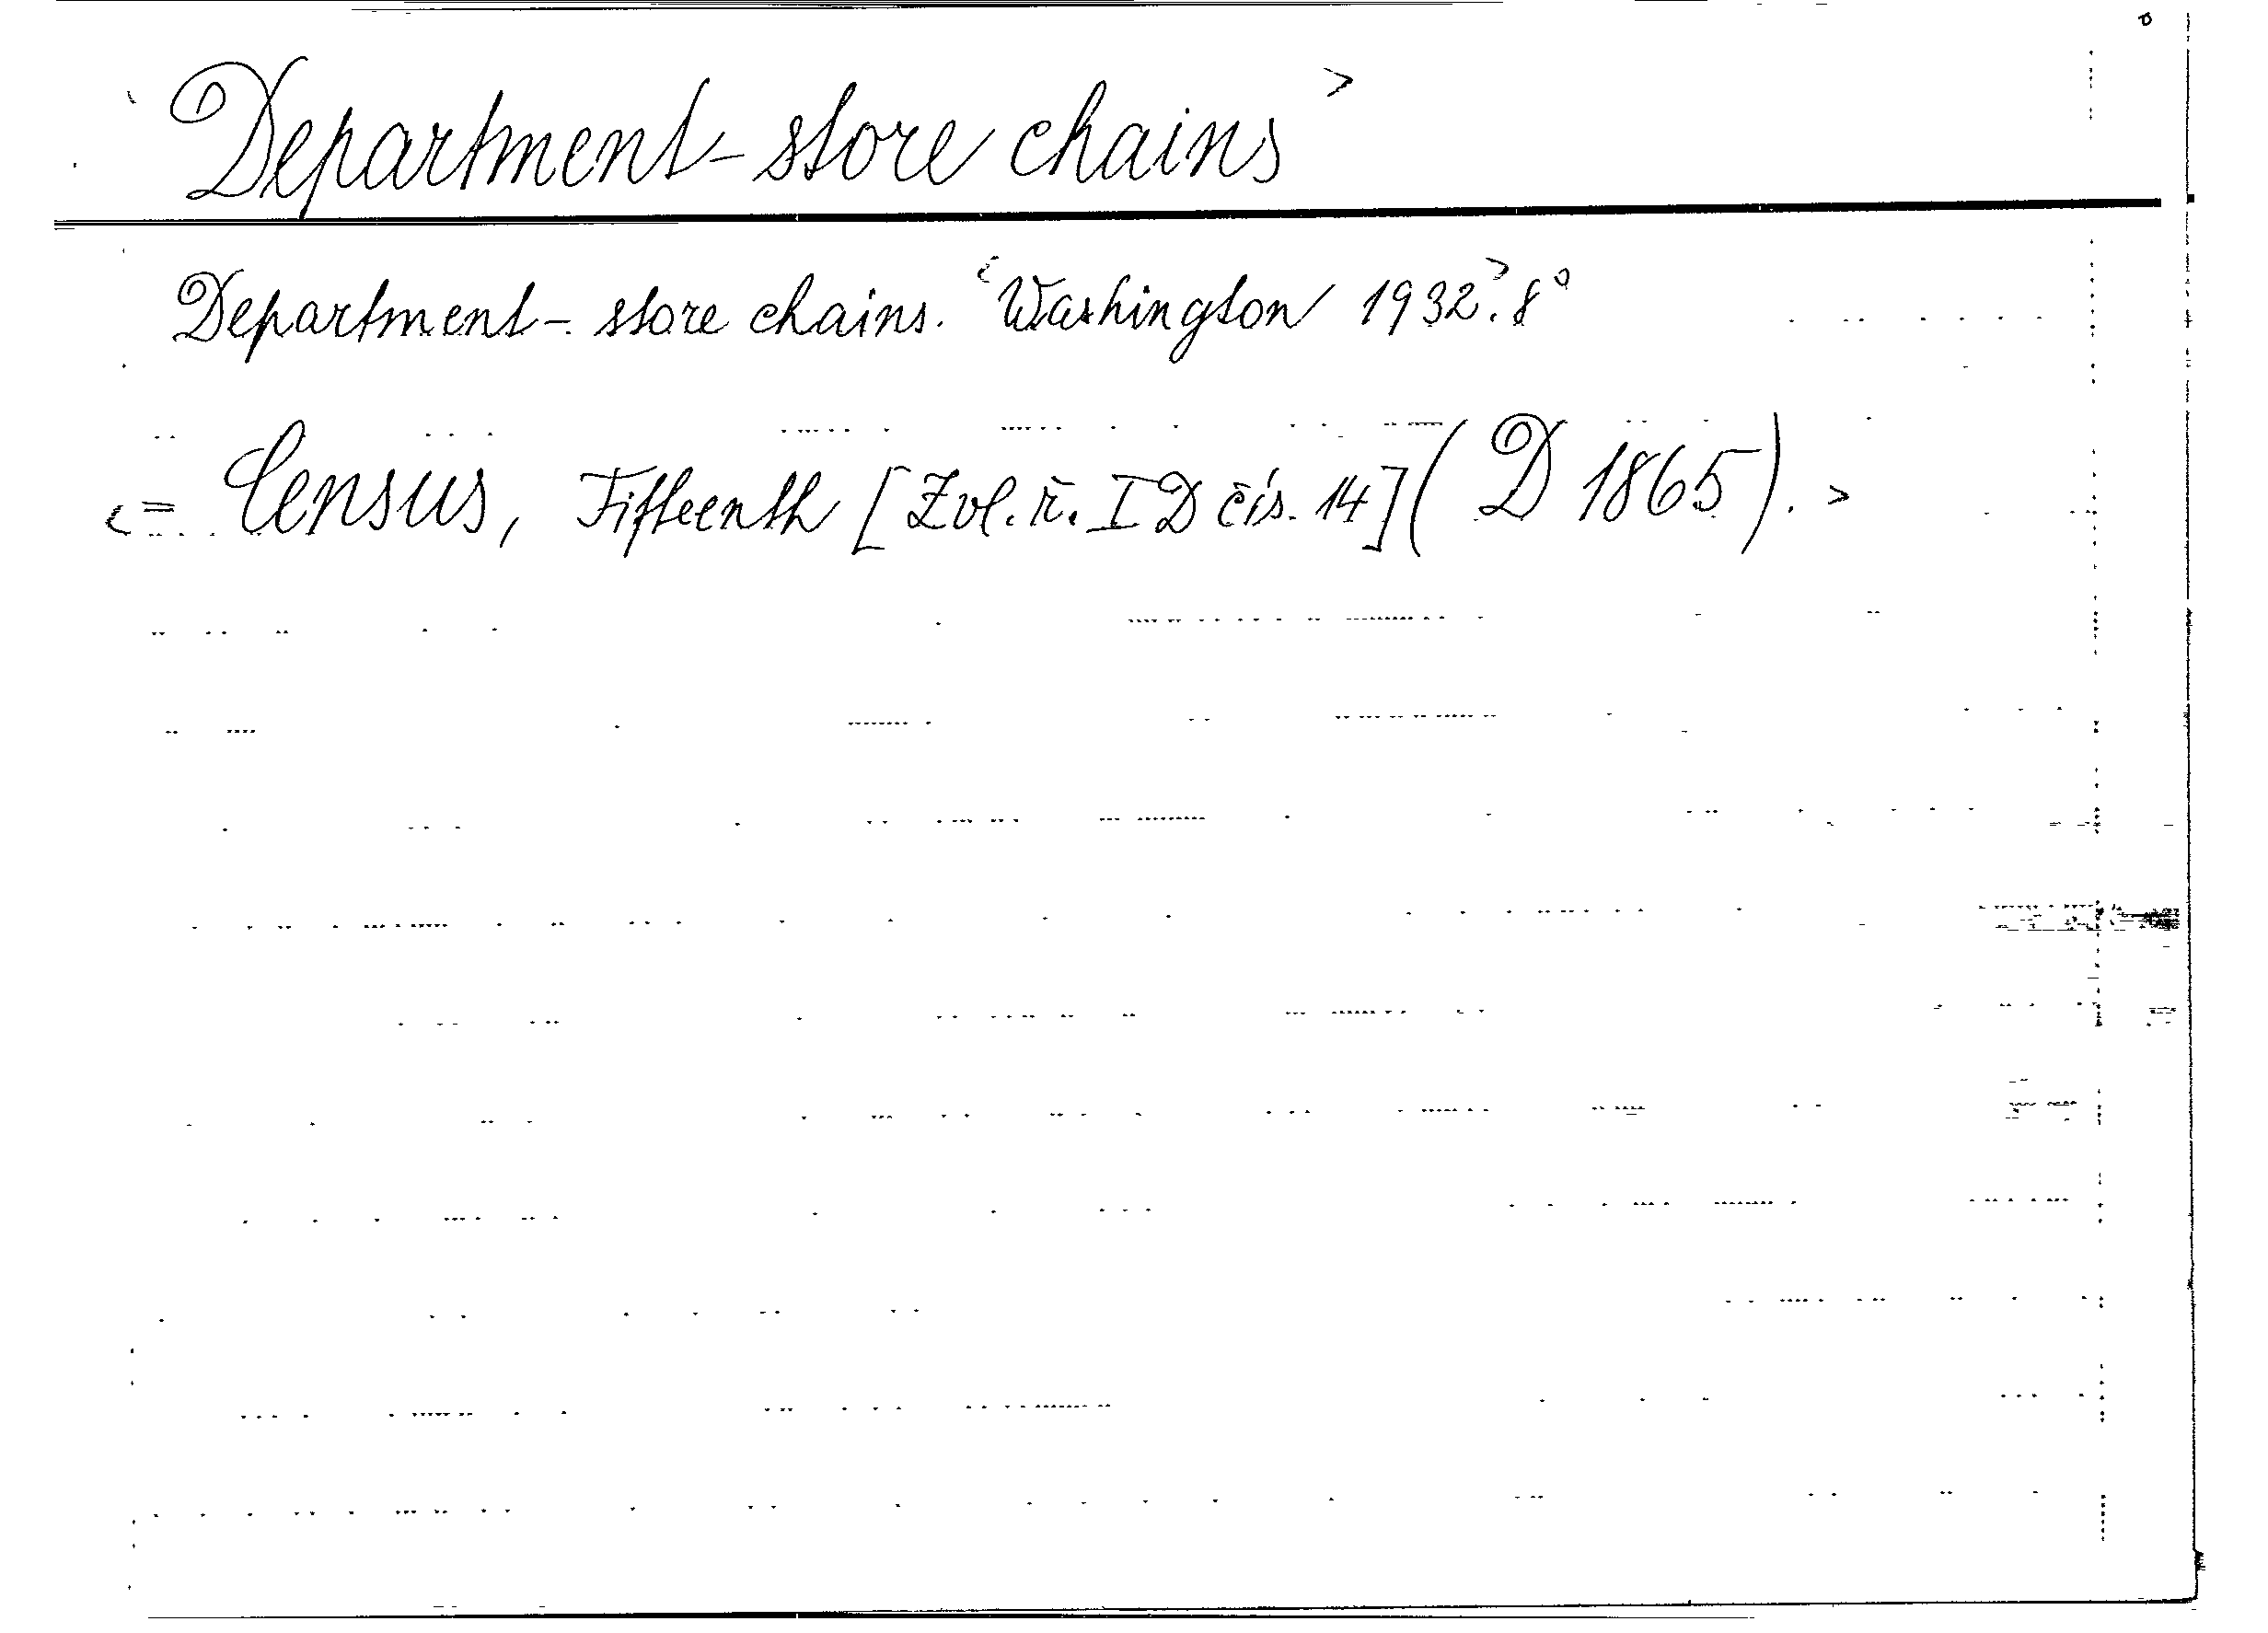 ‹Department-store chains›
Department-store chains. ‹Washington 1932›. 8°
‹= Census, Fifteenth [Zvl. ř. I D čís. 14] (D 1865).›